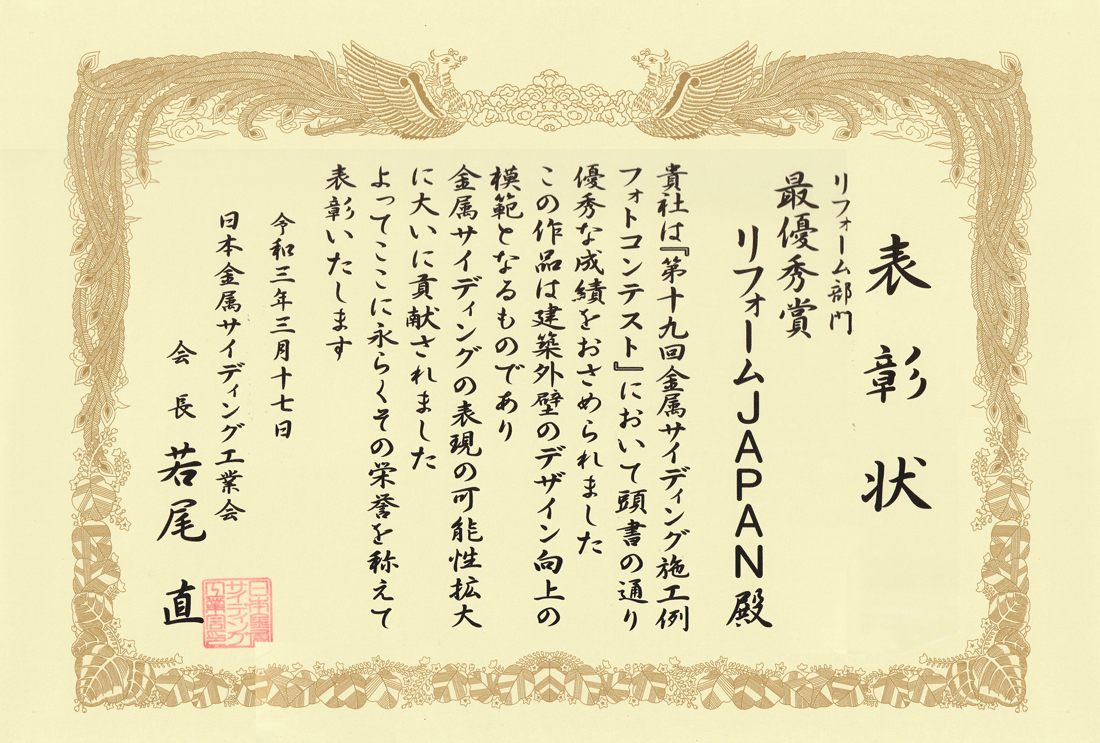 表彰状
リフォーム部門
最優秀賞
リフォームJAPAN殿
貴社は『第十九回金属サイディング施工例
フォトコンテスト』において頭書の通り
優秀な成績をおさめられました
この作品は建築外壁のデザイン向上の
模範となるものであり
金属サイディングの表現の可能性拡大
に大いに貢献されました
よってここに永らくその栄誉を称えて
表彰いたします
令和三年三月十七日
日本金属サイディング工業会
会長 若尾 直
日本金属
サイディング
工業会印